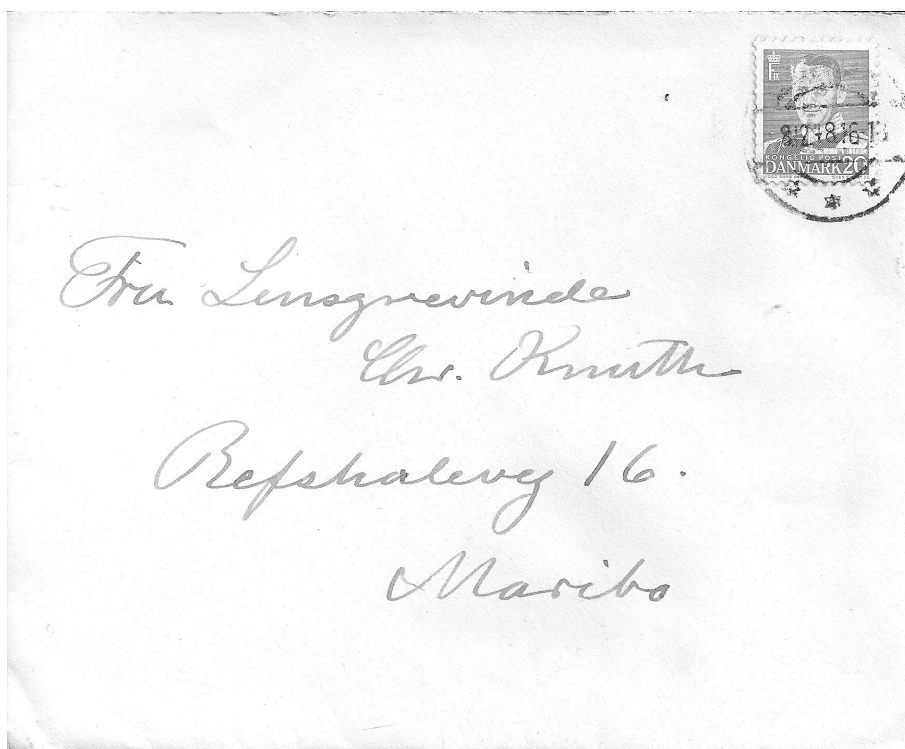 KONGELIG POST
DANMARK 20
Fru Lensgrevinde
Chr. Knuth
Refshalevej 16.
Maribo